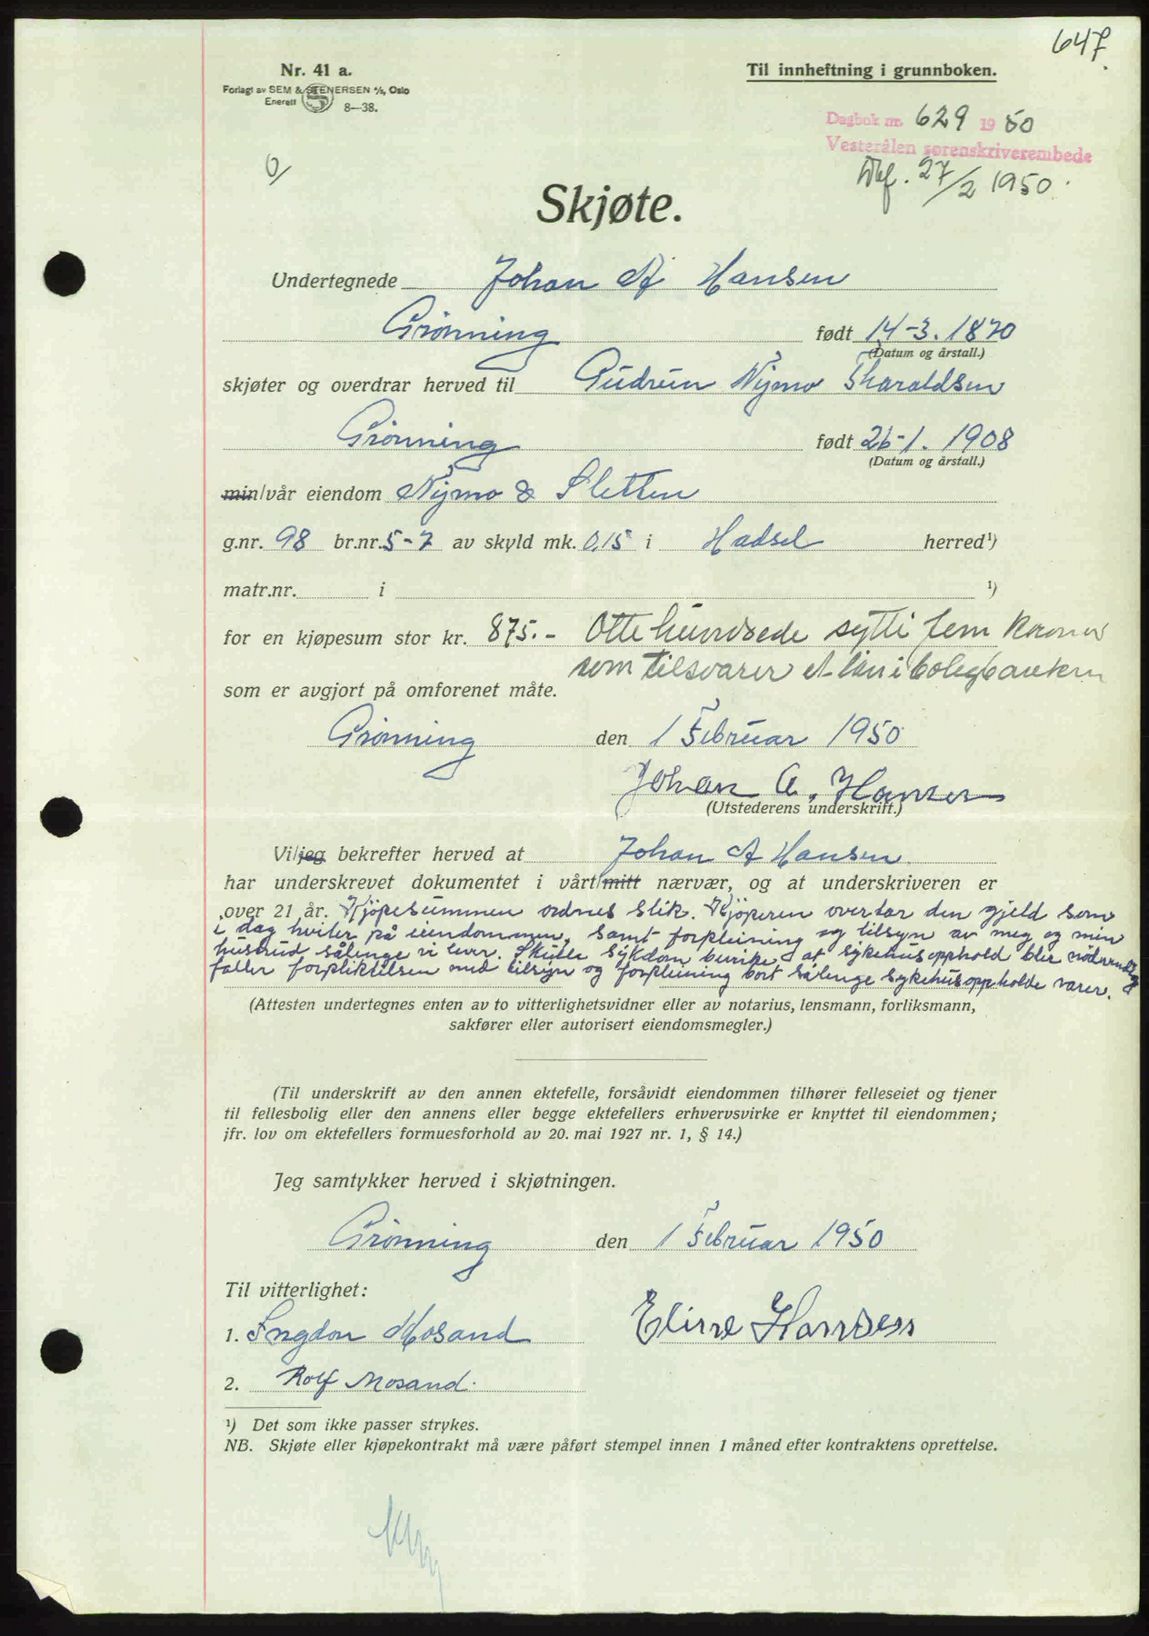 647
Nr. 41 a.
Til innheftning i grunnboken.
Forlagt av SEM & STENERSEN A/S, Oslo
Enerett 8—38.
Dagbok nr. 629 1950
Vesterålen sorenskriverembede
27/2 1950.
0/
Skjøte.
Undertegnede Johan A Hansen
Grønning født 14-3. 1870
(Datum og årstall.)
skjøter og overdrar herved til Gudrun Nymo Tharaldsen
Grønning født 26-1. 1908
(Datum og årstall.)
min/vår eiendom Nymo & Sletten
g.nr. 98 br.nr. 5-7 av skyld mk. 0,15 i Hadsel herred¹)
matr.nr. i ¹)
for en kjøpesum stor kr. 875.- Otte hundrede sytti fem kroner
som tilsvarer et lån i boligbanken
som er avgjort på omforenet måte.
Grønning den 1 Februar 1950
Johan A. Hansen
(Utstederens underskrift.)
Vi/jeg bekrefter herved at Johan A Hansen
har underskrevet dokumentet i vårt/mitt nærvær, og at underskriveren er
over 21 år. Kjöpesummen ordnes slik. Kjöperen overtar den gjeld som
i dag hviler på eiendommen, samt forpleining og tilsyn av meg og min
hustrud sålenge vi lever. Skulde sykdom bevirke at sykehusopphold blir nödvendig
faller forpliktelsen med tilsyn og forpleining bort sålenge sykehusoppholde varer.
(Attesten undertegnes enten av to vitterlighetsvidner eller av notarius, lensmann, forliksmann,
sakfører eller autorisert eiendomsmegler.)
(Til underskrift av den annen ektefelle, forsåvidt eiendommen tilhører felleseiet og tjener
til fellesbolig eller den annens eller begge ektefellers erhvervsvirke er knyttet til eiendommen;
jfr. lov om ektefellers formuesforhold av 20. mai 1927 nr. 1, § 14.)
Jeg samtykker herved i skjøtningen.
Grønning den 1 Februar 1950
Til vitterlighet:
Eline Hansen
1. Ingdon Mosand
2. Rolf Mosand.
¹) Det som ikke passer strykes.
NB. Skjøte eller kjøpekontrakt må være påført stempel innen 1 måned efter kontraktens oprettelse.